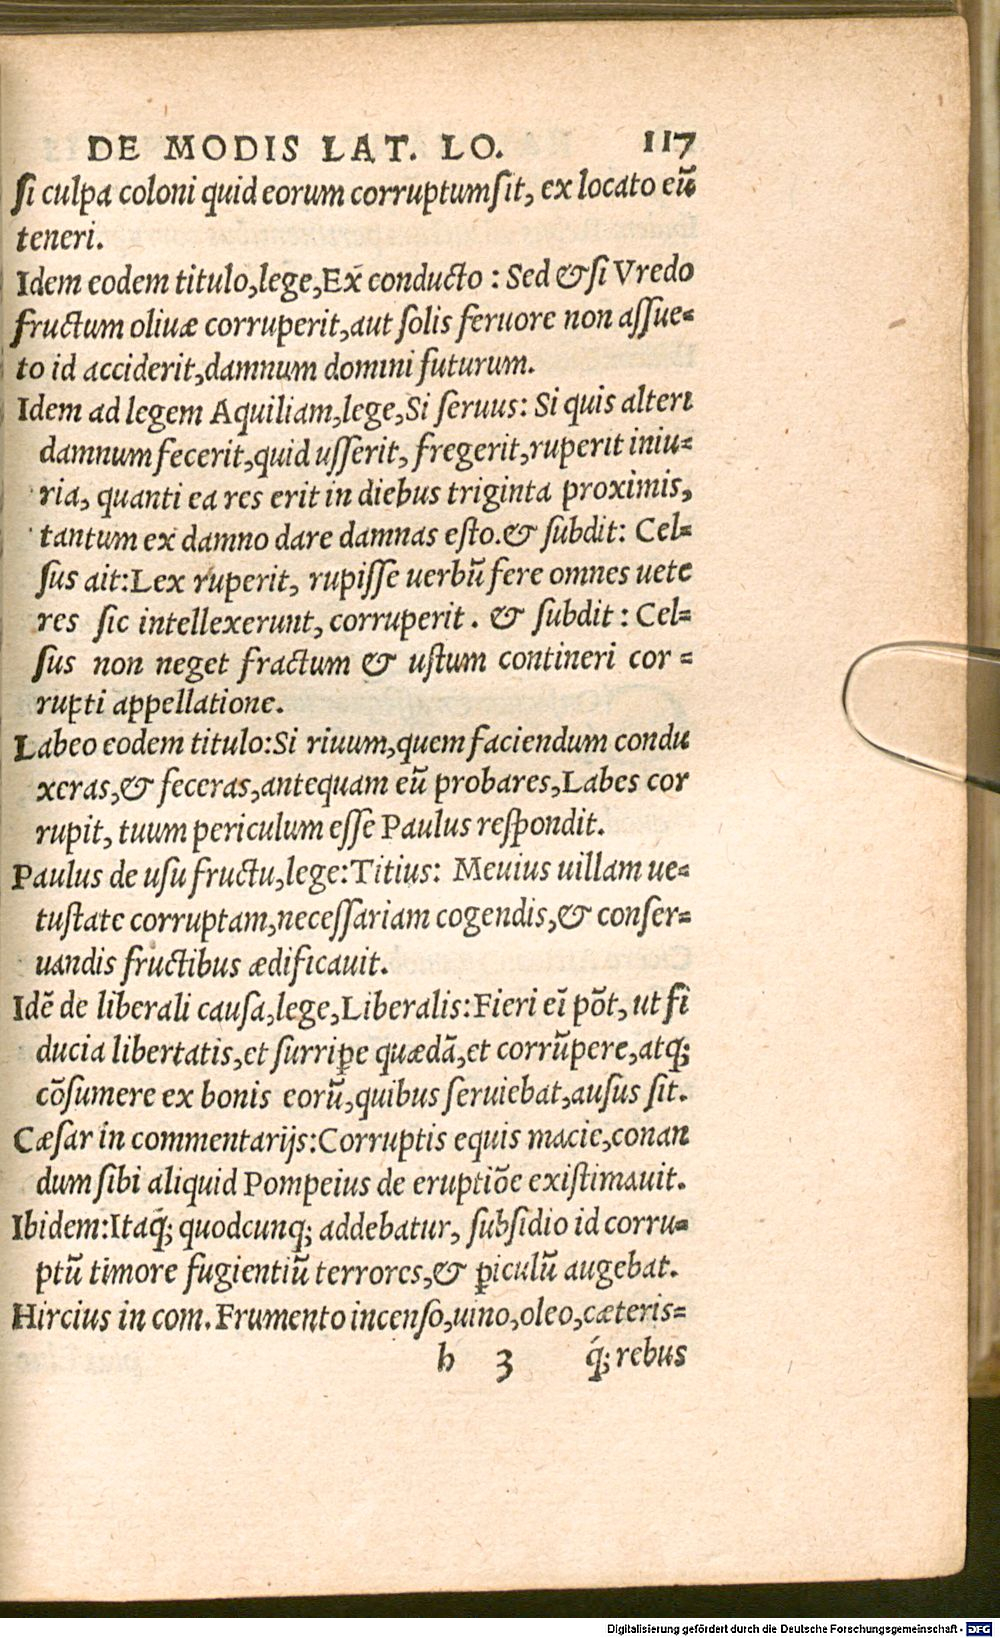 DE MODIS LAT. LO. 117
si culpa coloni quid eorum corruptum sit, ex locato eũ
teneri.
Idem eodem titulo, lege, Ex conducto : Sed & si Vredo
fructum oliuæ corruperit, aut solis feruore non assue=
to id acciderit, damnum domini futurum.
Idem ad legem Aquiliam, lege, Si seruus: Si quis alteri
damnum fecerit, quid usserit, fregerit, ruperit iniu=
ria, quanti ea res erit in diebus triginta proximis,
tantum ex damno dare damnas esto. & subdit: Cel=
sus ait: Lex ruperit, rupisse uerbũ fere omnes uete
res sic intellexerunt, corruperit. & subdit: Cel=
sus non neget fractum & ustum contineri cor=
rupti appellatione.
Labeo eodem titulo: Si riuum, quem faciendum condu
xeras, & feceras, antequam eũ probares, Labes cor
rupit, tuum periculum esse Paulus respondit.
Paulus de usu fructu, lege: Titius: Meuius uillam ue=
tustate corruptam, necessariam cogendis, & conser=
uandis fructibus ædificauit.
Idẽ de liberali causa, lege, Liberalis: Fieri eĩ põt, ut fi
ducia libertatis, et surripe quædã, et corrũpere, atq;
cõsumere ex bonis eorũ, quibus seruiebat, ausus sit.
Cæsar in commentarijs: Corruptis equis macie, conan
dum sibi aliquid Pompeius de eruptiõe existimauit.
Ibidem: Itaq́; quodcunq; addebatur, subsidio id corru=
ptũ timore fugientiũ terrores, & ꝑiculũ augebat.
Hircius in com. Frumento incenso, uino, oleo, cæteris=
h 3 q́; rebus
Digitalisierung gefördert durch die Deutsche Forschungsgemeinschaft - DFG